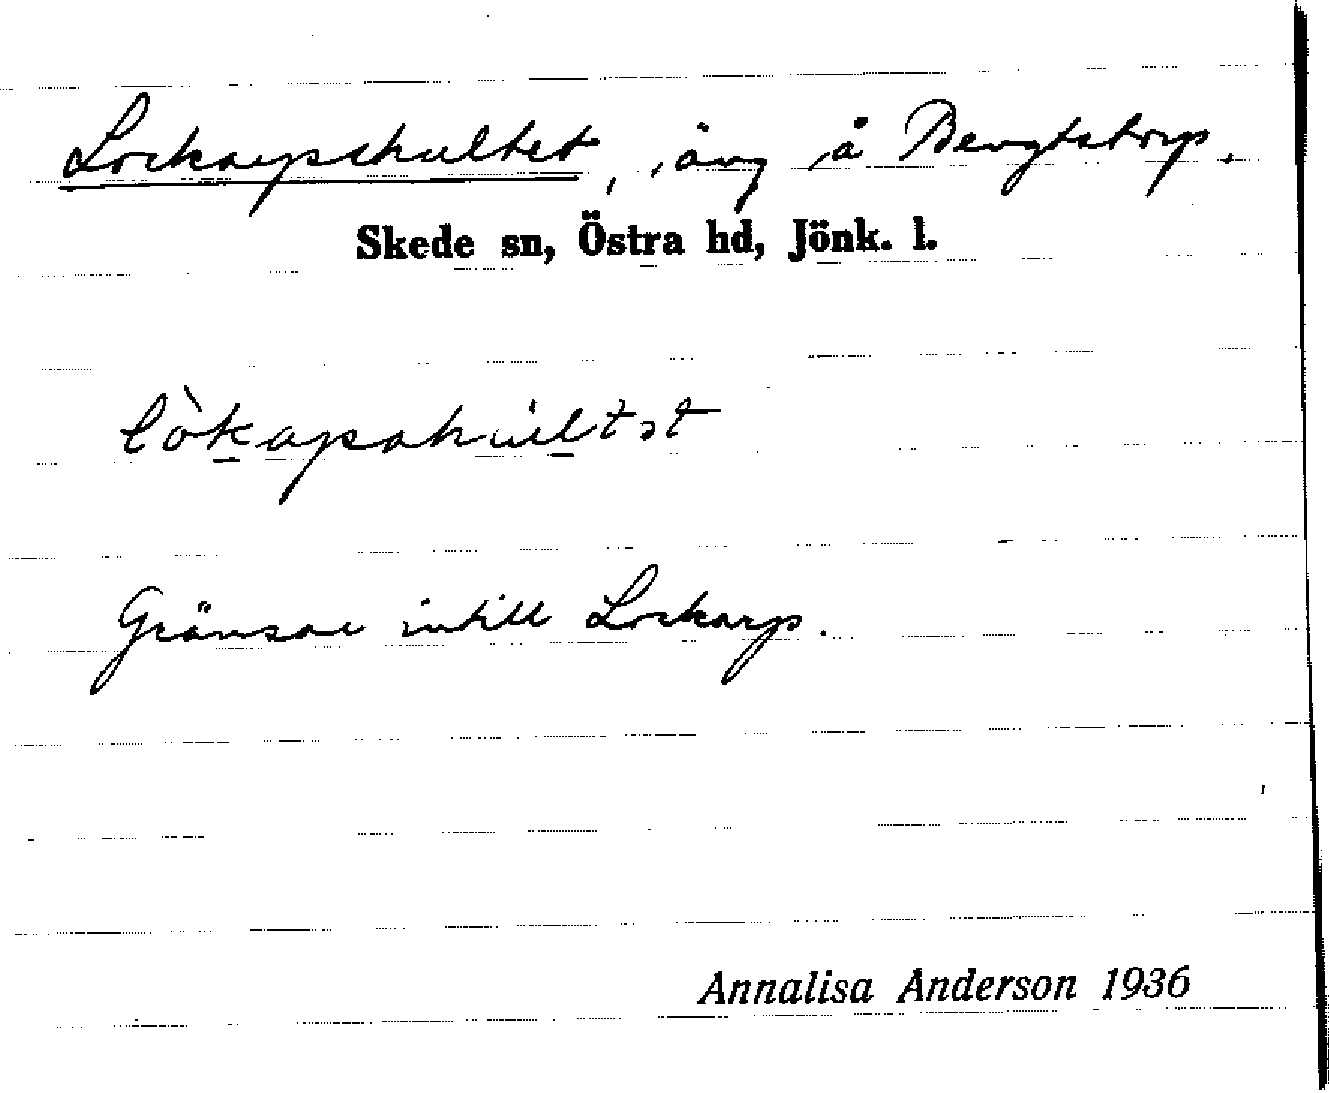 Lockarpskultet, äng å Bengtstorp.
Skede sn, Östra hd, Jönk. l.
lòkapskùltət
Gränsar intill Lockarp.
Annalisa Anderson 1936